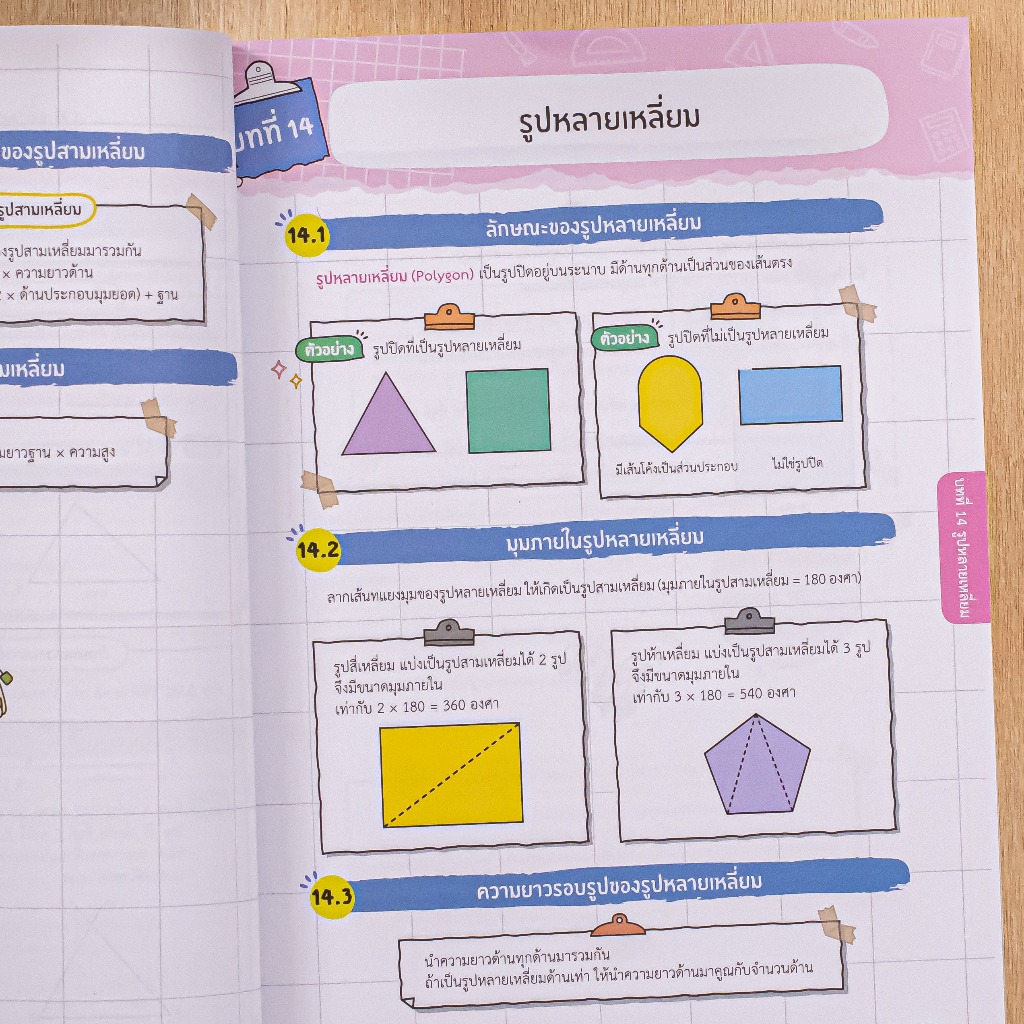 ของรูปสามเหลี่ยม
รูปสามเหลี่ยม
รูปสามเหลี่ยมมารวมกัน
× ความยาวด้าน
× ด้านประกอบมุมยอด) + ฐาน
× ความสูง
บทที่ 14
รูปหลายเหลี่ยม
14.1 ลักษณะของรูปหลายเหลี่ยม
รูปหลายเหลี่ยม (Polygon) เป็นรูปปิดอยู่บนระนาบ มีด้านทุกด้านเป็นส่วนของเส้นตรง
ตัวอย่าง รูปปิดที่เป็นรูปหลายเหลี่ยม
ตัวอย่าง รูปปิดที่ไม่เป็นรูปหลายเหลี่ยม
มีเส้นโค้งเป็นส่วนประกอบ
ไม่ใช่รูปปิด
14.2 มุมภายในรูปหลายเหลี่ยม
ลากเส้นทแยงมุมของรูปหลายเหลี่ยม ให้เกิดเป็นรูปสามเหลี่ยม (มุมภายในรูปสามเหลี่ยม = 180 องศา)
รูปสี่เหลี่ยม แบ่งเป็นรูปสามเหลี่ยมได้ 2 รูป
จึงมีขนาดมุมภายใน
เท่ากับ 2 × 180 = 360 องศา
รูปห้าเหลี่ยม แบ่งเป็นรูปสามเหลี่ยมได้ 3 รูป
จึงมีขนาดมุมภายใน
เท่ากับ 3 × 180 = 540 องศา
14.3 ความยาวรอบรูปของรูปหลายเหลี่ยม
นำความยาวด้านทุกด้านมารวมกัน
ถ้าเป็นรูปหลายเหลี่ยมด้านเท่า ให้นำความยาวด้านมาคูณกับจำนวนด้าน
บทที่ 14 รูปหลายเหลี่ยม